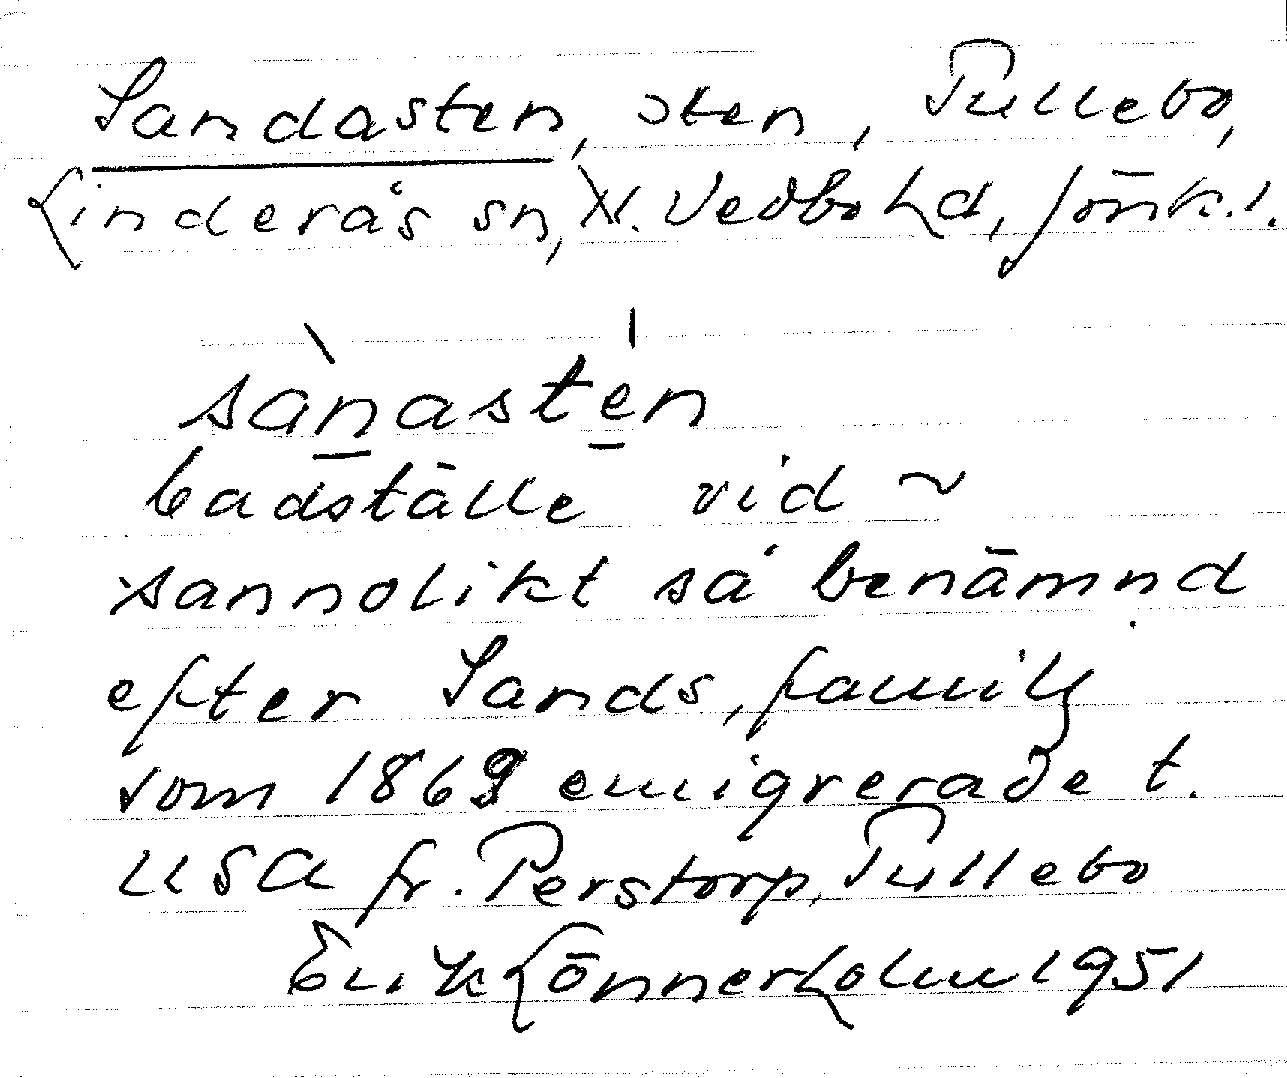 Sandasten, sten, Pullebo,
Linderås sn, N. Vedbo hd, Jönk. l.
sànastén
badställe vid ~
sannolikt så benämnd
efter Sands, familj
som 1869 emigrerade t.
USA fr. Perstorp, Pullebo
Erik Lönnerholm 1951